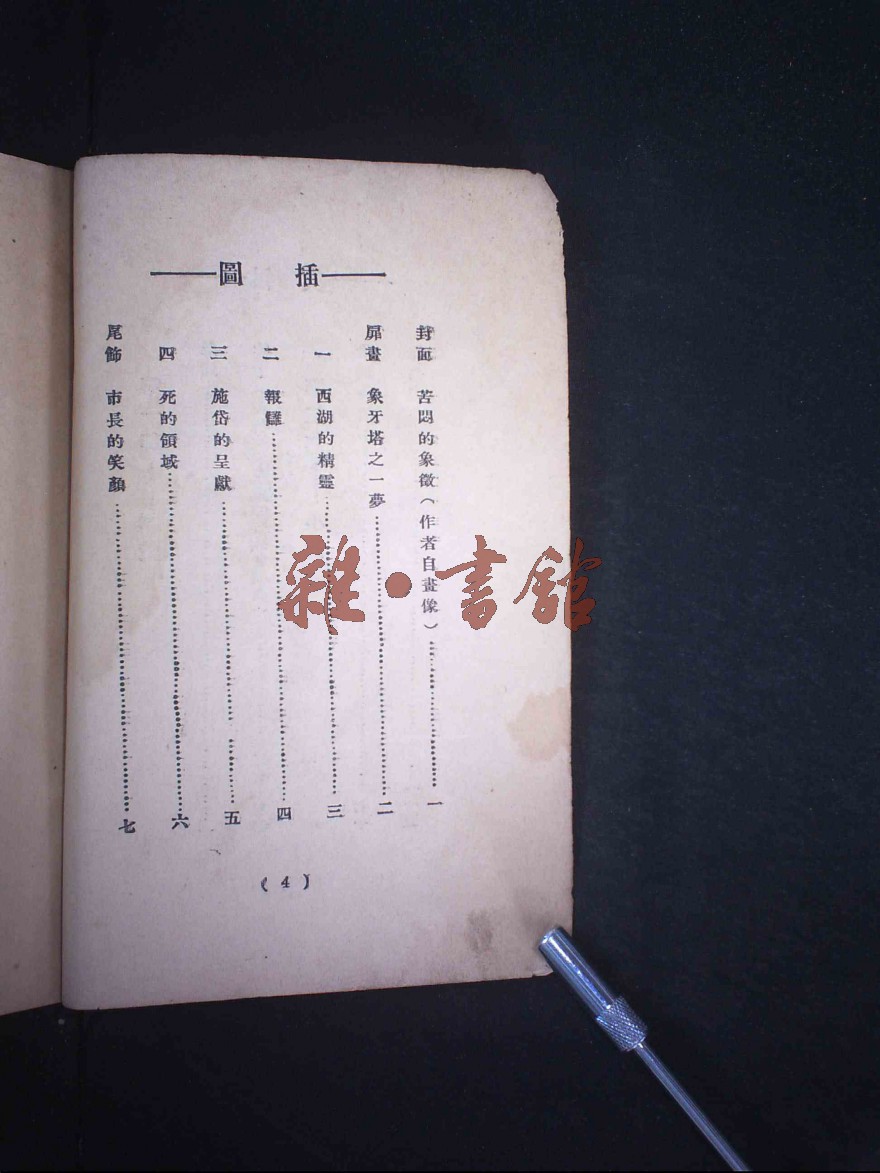 ——插　圖——
封面　苦悶的象徵(作者自畫像)……一
扉畫　象牙塔之一夢……二
一　西湖的精靈……三
二　報讎……四
三　施岱的呈獻……五
四　死的領域……六
尾飾　市長的笑顏……七
(4)
雜·書館